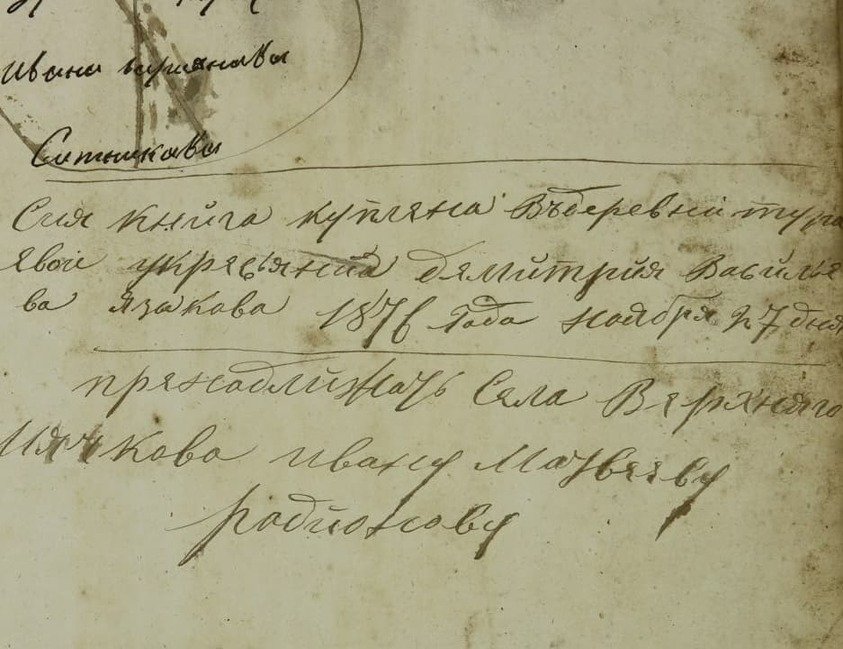 Ивана
Ситникова
Сия книга куплена Въдеревни тура
евой укресьянина Демитрия Василье
ва Язакова 1876 Года ноября 27 дня
пренадлижать Села Верхняго
Мячкова ивану Матвееву
родионову